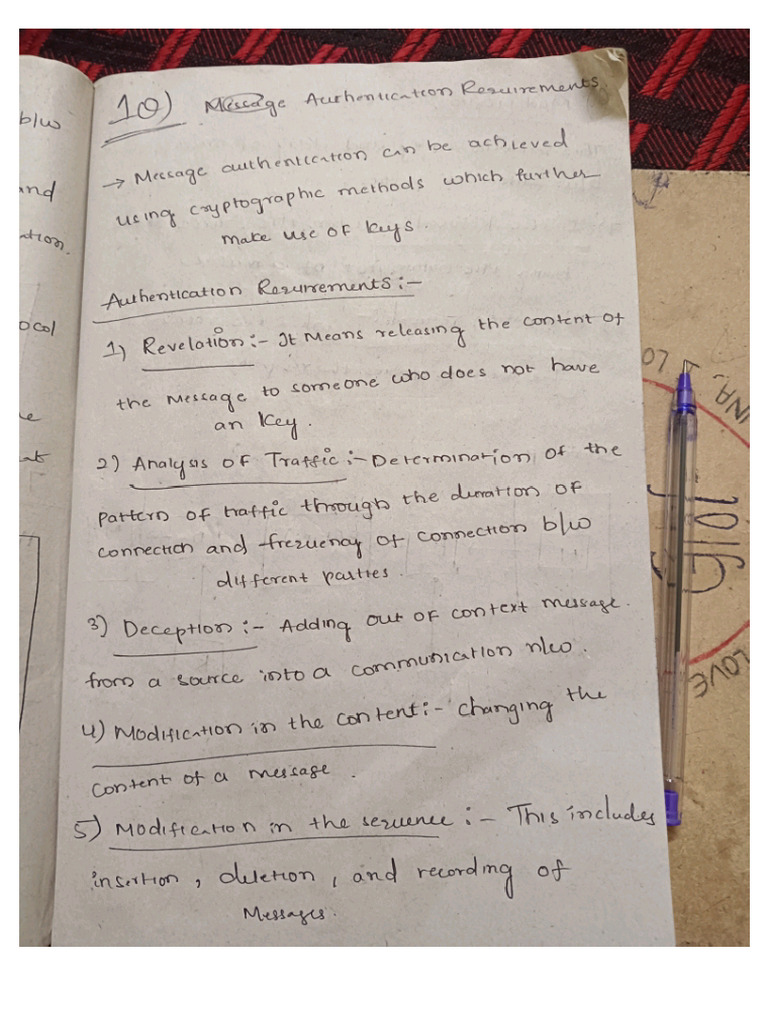 b/w
and
ation.
ocol
e
at
10) Message Authentication Requirements
→ Message authentication can be achieved
using cryptographic methods which further
make use of keys.
Authentication Requirements :-
1) Revelation :- It Means releasing the content of
the message to someone who does not have
an key.
2) Analysis of Traffic :- Determination of the
pattern of traffic through the duration of
connection and frequency of connection b/w
different parties.
3) Deception :- Adding out of context message.
from a source into a communication n/w.
4) Modification in the content :- changing the
content of a message.
5) Modification in the sequence :- This includes
insertion, deletion, and recording of
Messages.
LOVE